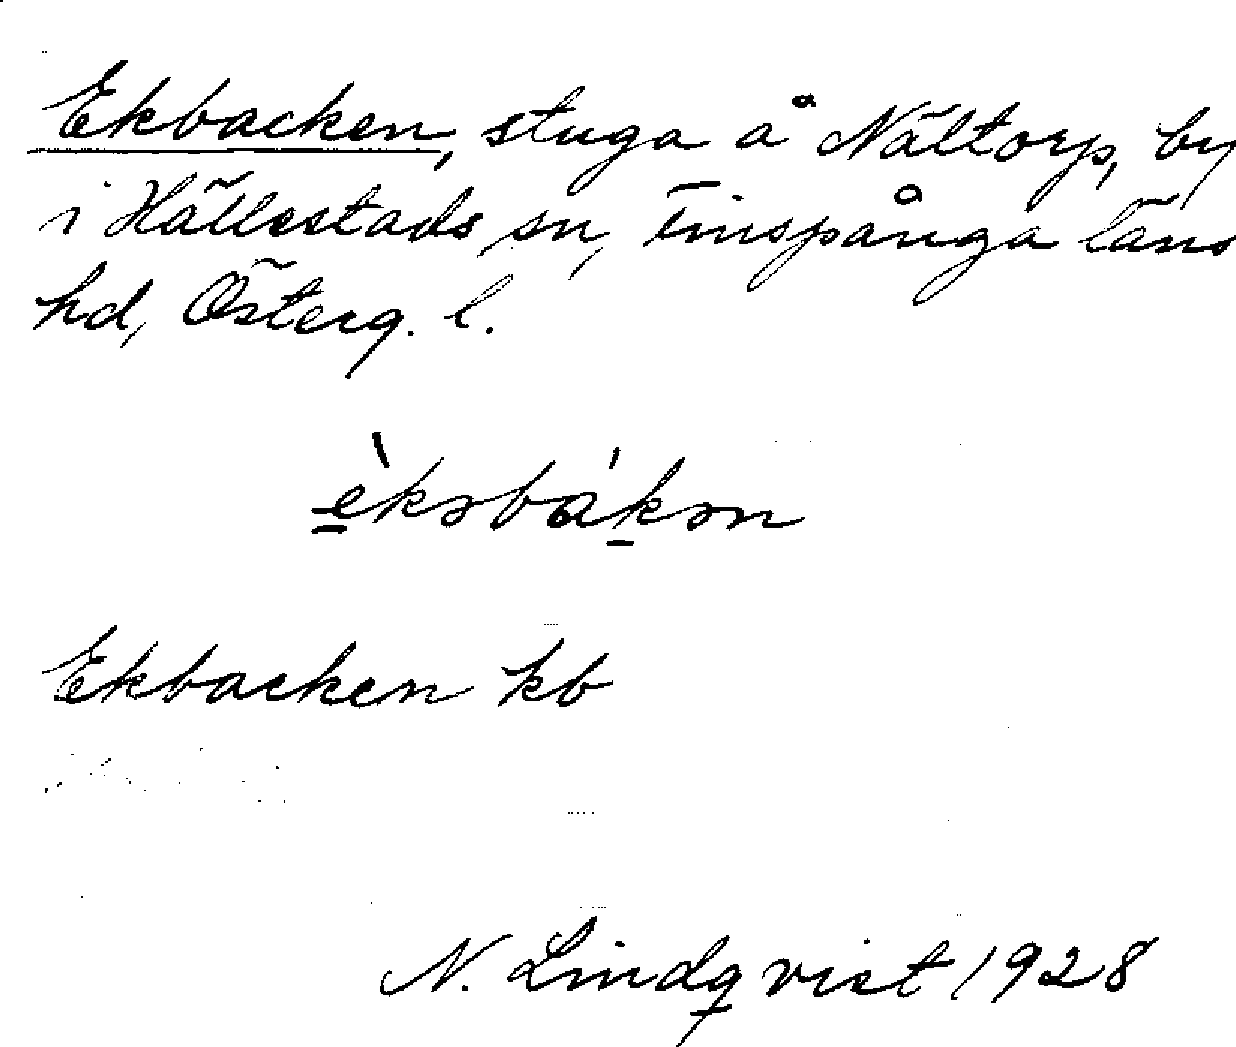 Ekbacken, stuga å Nältorp, by
i Hällestads sn, Finspånga läns
hd, Österg. l.
èkəbákən
Ekbacken kb
N. Lindqvist 1928